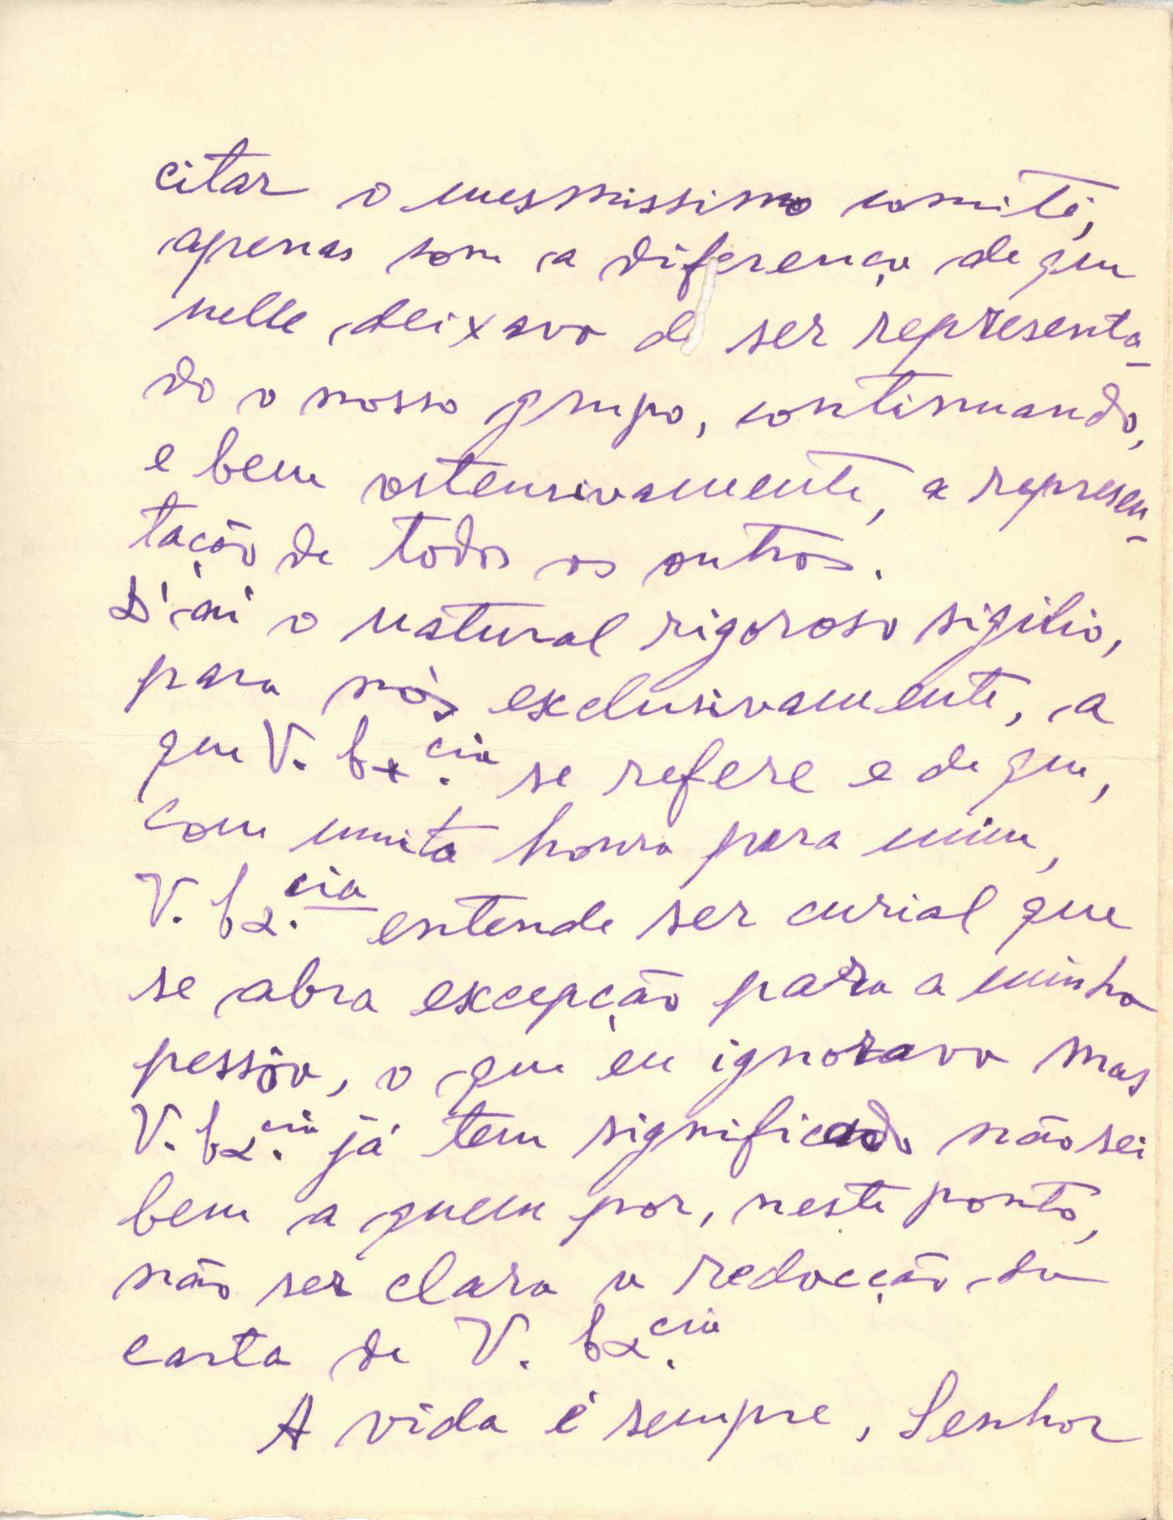 citar o mesmissimo comité,
apenas com a diferença de que
nelle deixava de ser representa-
do o nosso grupo, continuando,
e bem ostensivamente, a represen-
tação de todos os outros.
D'aí o natural rigoroso sigilio,
para nós exclusivamente, a
que V. Ex.cia se refere e de que,
com muita honra para mim,
V. Ex.cia entende ser curial que
se abra excepção para a minha
pessôa, o que eu ignorava mas
V. Ex.cia já tem significado não sei
bem a quem por, neste ponto,
não ser clara a redacção da
carta de V. Ex.cia
A vida é sempre, Senhor